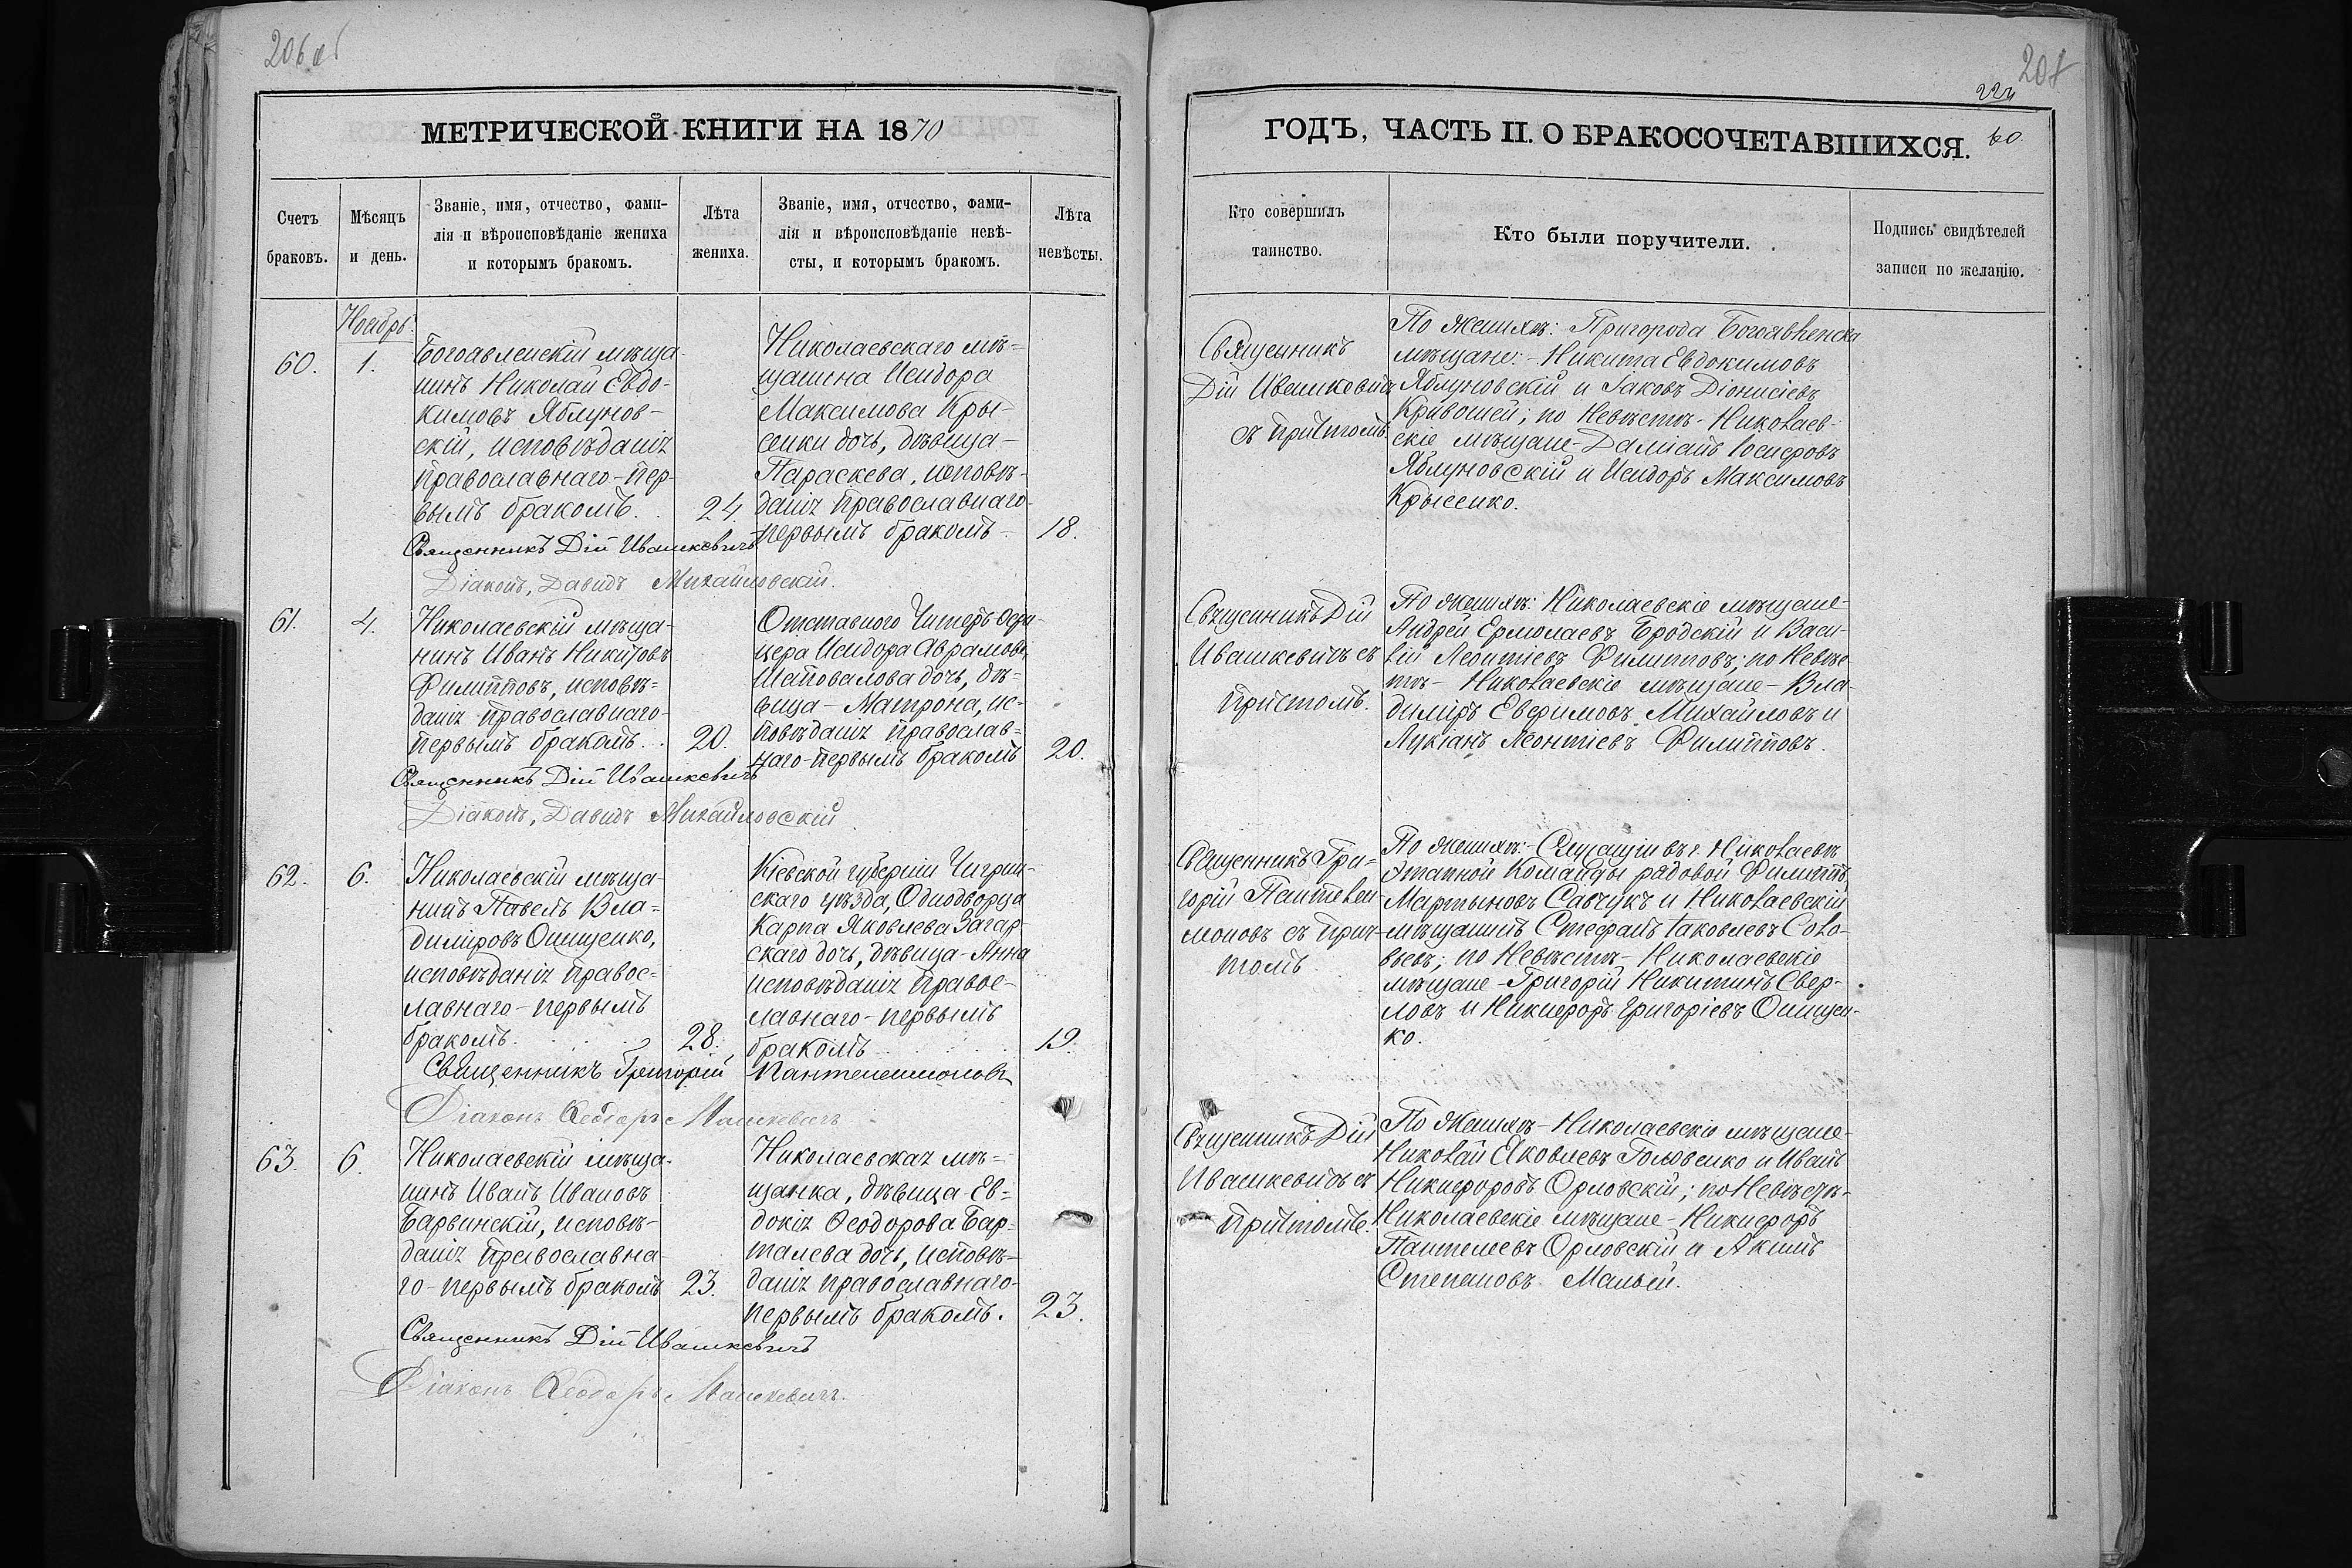 206 об
МЕТРИЧЕСКОЙ КНИГИ НА 1870
Счетъ браковъ.
Мѣсяцъ и день.
Званіе, имя, отчество, фами-
лія и вѣроисповѣданіе жениха
и которымъ бракомъ.
Лѣта жениха.
Званіе, имя, отчество, фами-
лія и вѣроисповѣданіе невѣ-
сты, и которымъ бракомъ.
Лѣта невѣсты.
Ноябрь.
60.
1.
Богоявленскій мѣща-
нинъ Николай Евдо-
кимовъ Яблунов-
скій, исповѣданія
православнаго-пер-
вымъ бракомъ.
24.
Николаевскаго мѣ-
щанина Исидора
Максимова Кры-
сенки дочь, дѣвица-
Параскева, исповѣ-
данія православнаго-
первымъ бракомъ-
18.
Священникъ Дій Ивашкевичъ
Діаконъ, Давидъ Михайловскій.
61.
4.
Николаевскій мѣща-
нинъ Иванъ Никитовъ
Филипповъ, исповѣ-
данія православнаго-
первымъ бракомъ.
20.
Отставного Унтеръ-офи-
цера Исидора Аврамова
Шаповалова дочь, дѣ-
вица-Матрона, ис-
повѣданія православ-
наго-первымъ бракомъ
20.
Священникъ Дій Ивашкевичъ
Діаконъ, Давидъ Михайловскій
62.
6.
Николаевскій мѣща-
нинъ Павелъ Вла-
диміровъ Онищенко,
исповѣданія правос-
лавнаго-первымъ
бракомъ.
28.
Кіевской губерніи Чигрин-
скаго уѣзда, Однодворца
Карпа Яковлева Загар-
скаго дочь, дѣвица-Анна
исповѣданія правос-
лавнаго-первымъ
бракомъ
19.
Священникъ Григорій Пантелеимоновъ
Діаконъ Ѳеодоръ Машкевичъ
63.
6.
Николаевскій мѣща-
нинъ Иванъ Ивановъ
Барвинскій, исповѣ-
данія православна-
го-первымъ бракомъ
23.
Николаевская мѣ-
щанка, дѣвица-Ев-
докія Ѳеодорова Бар-
талева дочь, исповѣ-
данія православнаго-
первымъ бракомъ.
23.
Священникъ Дій Ивашкевичъ
Діаконъ Ѳеодоръ Машкевичъ.
207
60.
ГОДЪ, ЧАСТЬ II. О БРАКОСОЧЕТАВШИХСЯ.
Кто совершилъ
таинство.
Кто были поручители.
Подпись свидѣтелей
записи по желанію.
Священникъ
Дій Ивашкевичъ
съ причтомъ.
По женихѣ: Пригорода Богоявленска
мѣщане:-Никита Евдокимовъ
Яблуновскій и Іаковъ Діонисіевъ
Кривошей; по Невѣстѣ-Николаев-
скіе мѣщане-Даміанъ Іосифовъ
Яблуновскій и Исидоръ Максимовъ
Крысенко.
Священникъ Дій
Ивашкевичъ съ
причтомъ.
По женихѣ: Николаевскіе мѣщане-
Андрей Ермолаевъ Бродскій и Васи-
лій Леонтіевъ Филипповъ; по Невѣс-
тѣ-Николаевскіе мѣщане-Вла-
диміръ Евфимовъ Михайловъ и
Лукіанъ Леонтіевъ Филипповъ.
Священникъ Гри-
горій Пантелеи-
моновъ съ прич-
томъ
По женихѣ:-Служащій въ г. Николаевѣ
этапной Команды рядовой Филиппъ
Мартыновъ Савчукъ и Николаевскій
мѣщанинъ Стефанъ Іаковлевъ Соло-
вьевъ; по Невѣстѣ-Николаевскіе
мѣщане-Григорій Никитинъ Свер-
ловъ и Никифоръ Григоріевъ Онищен-
ко.
Священникъ Дій
Ивашкевичъ съ
причтомъ.
По Женихѣ-Николаевскіе мѣщане-
Николай Яковлевъ Головенко и Иванъ
Никифоровъ Орловскій; по Невѣстѣ-
Николаевскіе мѣщане-Никифоръ
Пантелеевъ Орловскій и Акимъ
Степановъ Малый.